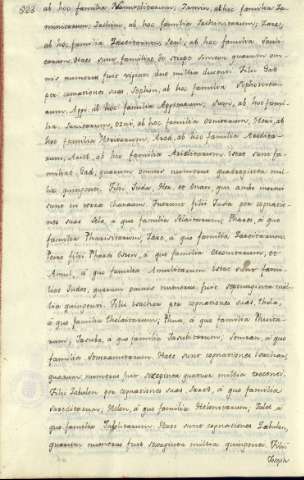 ab hoc familia Namuelitarum, Jamin, ab hoc familia Ja-
minitarum, Jachin, ab hoc familia Jachinitarum, Zare,
ab hoc familia Zareitarum, Saul, ab hoc familia Sauli-
tarum. Haec sunt familiae de stirpe Simeon, quarum om-
nis numerus fuit viginti duo millia ducenti. Filii Gad
per cognationes suas Sephon, ab hoc familia Sephonita-
rum, Aggi, ab hoc familia Aggitarum, Suni, ab hoc fami-
lia Sunitarum, Ozni, ab hoc familia Oznitarum, Heri, ab
hoc familia Heritarum, Arod, ab hoc familia Arodita-
rum, Ariel, ab hoc familia Arielitarum. Istae sunt fa-
miliae Gad, quarum omnis numerus quadraginta mil-
lia quingenti. Filii Juda, Her, et Onan, qui ambo mortui
sunt in terra Chanaan. Fueruntque filii Juda per cognatio-
nes suas Sela, a quo familia Selaitarum, Phares, à quo
familia Pharesitarum, Zare, à quo familia Zareitarum.
Porro filii Phares Esron, à quo familia Esronitarum, et
Amul, à quo familia Amulitarum. Istae sunt fami-
liae Juda, quarum omnis numerus fuit septuaginta mil-
lia quingenti. Filii Issachar per cognationes suas, Thola,
à quo familia Tholaitarum, Phua, à quo familia Phuita-
rum, Jasub, à quo familia Jasubitarum, Semran, à quo
familia Semranitarum. Hae sunt cognationes Issachar,
quarum numerus fuit sexaginta quatuor millia trecenti.
Filii Zabulon per cognationes suas Sared, à quo familia
Sareditarum, Helon, à quo familia Helonitarum, Jalel, à
quo familia Jalelitarum. Hae sunt cognationes Zabulon,
quarum numerus fuit sexaginta millia quingenti. Filii
Joseph